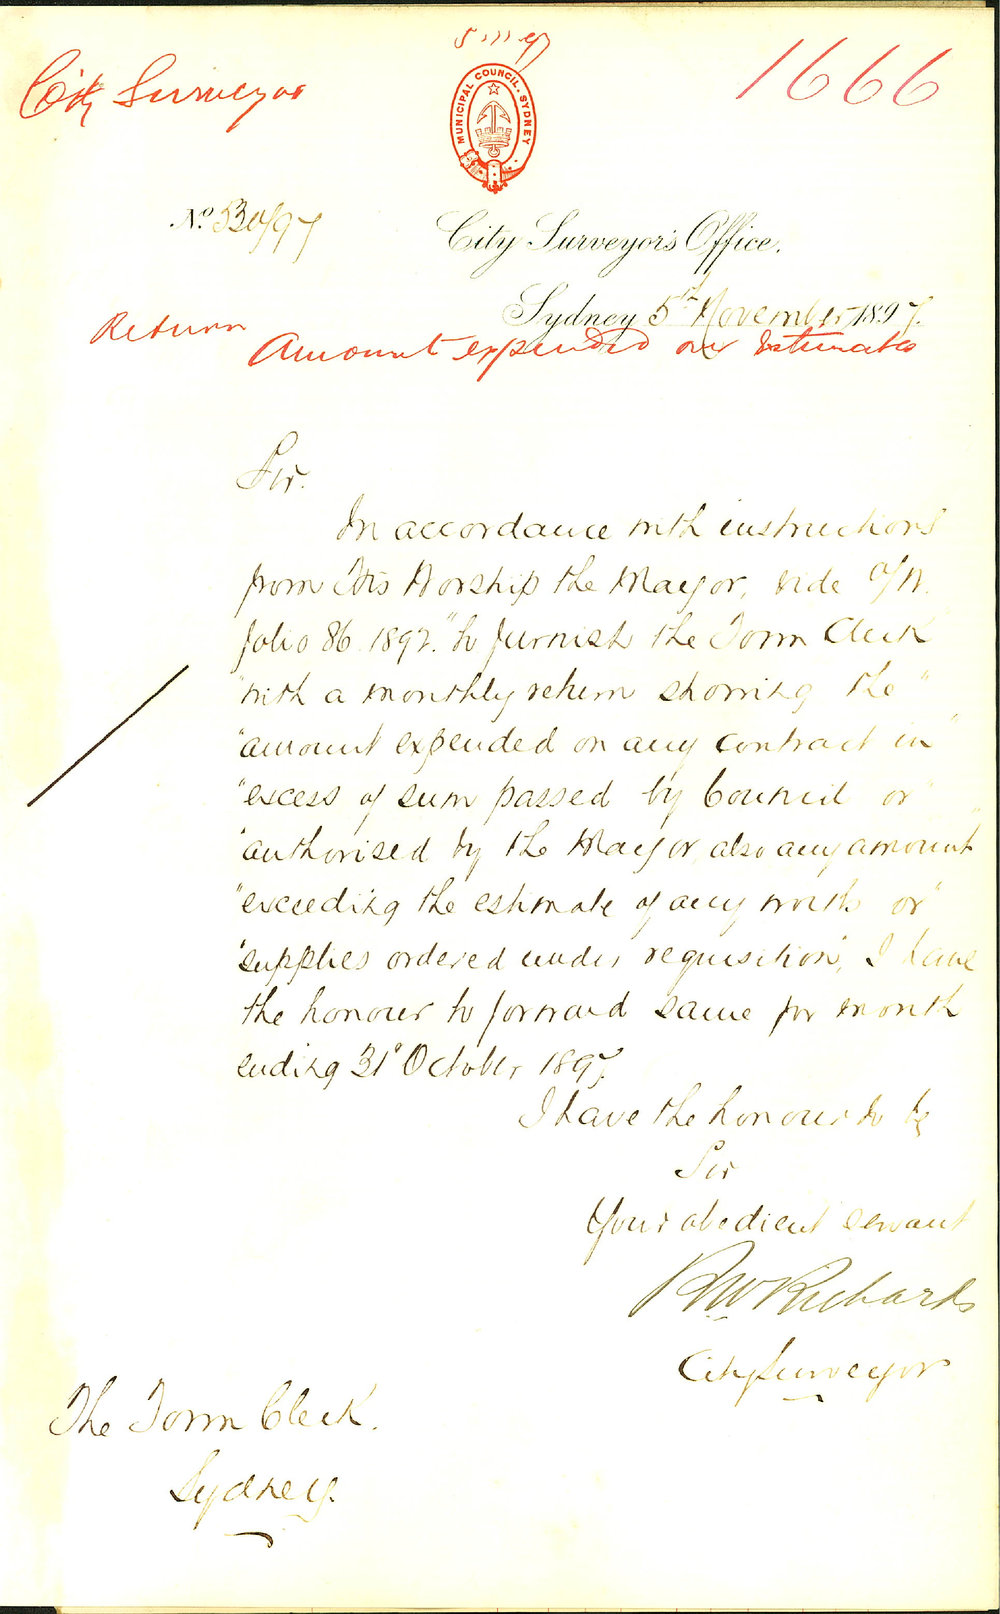 5 11 97
City Surveyor
1666
MUNICIPAL COUNCIL. SYDNEY
No. 530/97
City Surveyor's Office.
Sydney 5th November 1897.
Return
Amount expended over Estimates
Sir.
In accordance with instructions
from His Worship the Mayor, vide
folio 86. 1897. "to furnish the Town Clerk
"with a monthly return showing the"
"amount expended on any contract in"
"excess of sum passed by Council or"
"authorised by the Mayor, also any amount"
"exceeding the estimate of any works or"
"supplies ordered under requisition", I have
the honour to forward same for month
ending 31st October 1897.
I have the honour to be
Sir
Your obedient servant
RW Richards
City Surveyor
The Town Clerk.
Sydney.